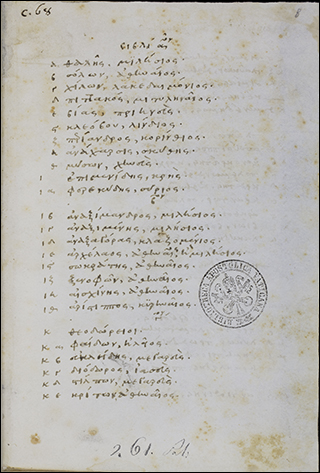 C. 68
α θαλῆς, μιλήσιος.
β σόλων, ἀθηναῖος.
γ χίλων, λακεδαιμόνιος.
δ πιττακὸς, μιτυληναῖος.
ε βίας, πριηνεύς.
ς κλεόβουλος, λίνδιος.
ζ περίανδρος, κορίνθιος.
η ἀνάχαρσις, σκύθης.
θ μύσων, χηνεύς.
ι ἐπιμενίδης, κρής
ια φερεκύδης, σύριος.
ιβ ἀναξίμανδρος, μιλήσιος.
ιγ ἀναξιμένης, μιλήσιος.
ιδ ἀναξαγόρας, κλαζομένιος.
ιε ἀρχέλαος, μιλήσιος.
ις σωκράτης, ἀθηναῖος.
ιζ ξενοφῶν, ἀθηναῖος.
ιη αἰσχίνης, ἀθηναῖος.
ιθ ἀρίστιππος, κυρηναῖος.
κ θεοδώρειοι.
κα φαίδων, ἠλεῖος.
κβ εὐκλείδης, μεγαρεύς.
κγ διόδωρος, ἰασεύς.
κδ στίλπων, μεγαρεύς.
κε κρίτων ἀθηναῖος.
BIBLIOTHECA APOSTOLICA VATICANA
2. 61.